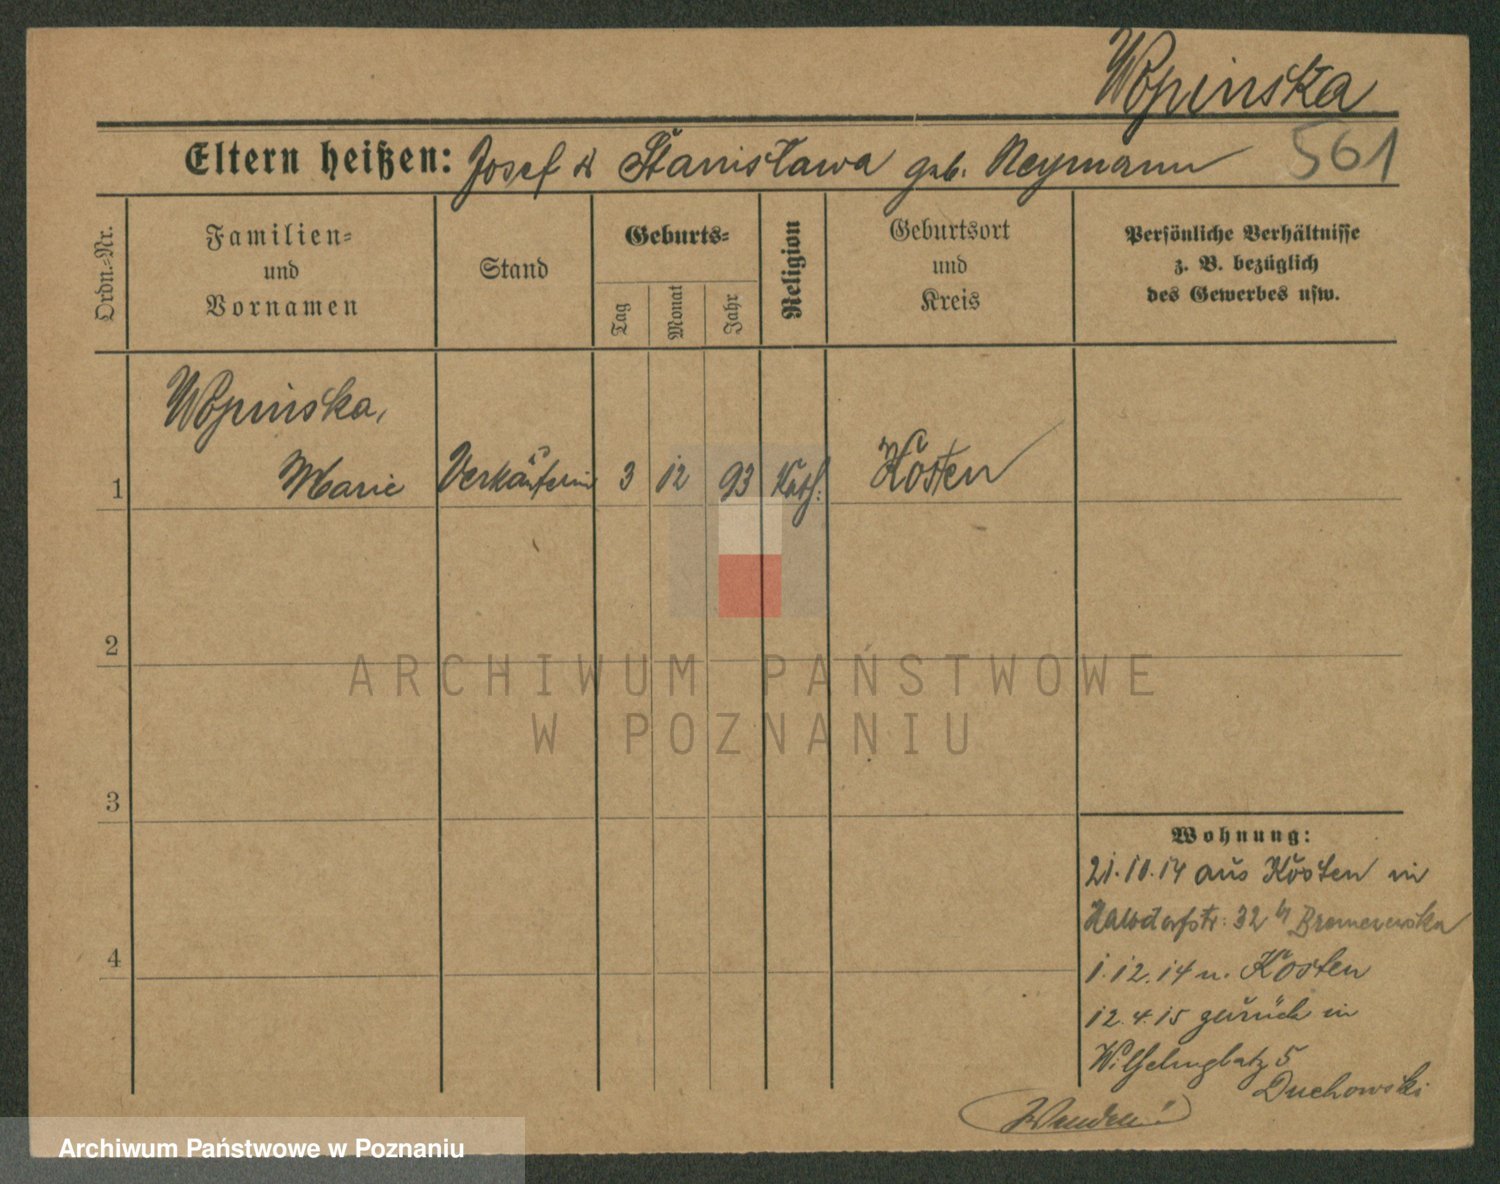 Wopinska
Eltern heißen: Josef & Stanisława geb. Neymann 561
Ordn.-Nr.
Familien-
und
Vornamen
Stand
Geburts-
Tag
Monat
Jahr
Religion
Geburtsort
und
Kreis
Persönliche Verhältnisse
z. B. bezüglich
des Gewerbes usw.
Wopinska,
1 Marie Verkäuferin 3 12 93 Kath. Kosten
2
ARCHIWUM PAŃSTWOWE
W POZNANIU
3
4
Wohnung:
21.10.14 aus Kosten in
32
1.12.14 n. Kosten
12.4.15 zurück in
Wilhelmplatz 5
Duchowski
Archiwum Państwowe w Poznaniu